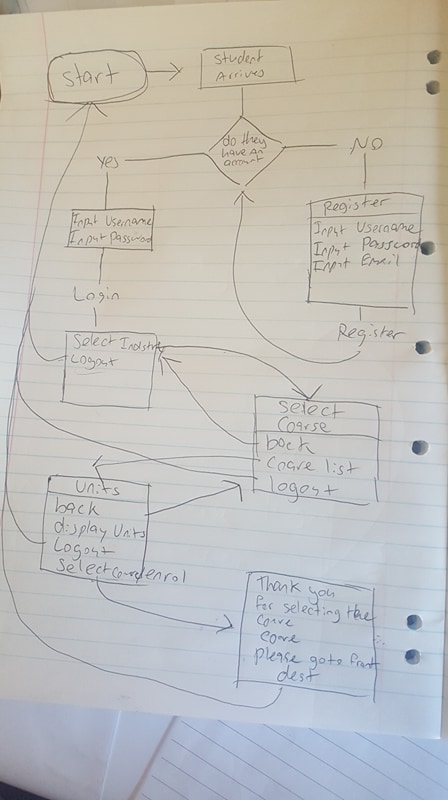 Start
Student
Arrives
do they
have an
account
Yes
NO
Input Username
Input Password
Register
Input Username
Input Password
Input Email
Login
Register
Select Industry
Logout
Select
Coarse
back
Coarse list
logout
Units
back
display Units
Logout
Select course/enrol
Thank you
for selecting the
please goto front
dest